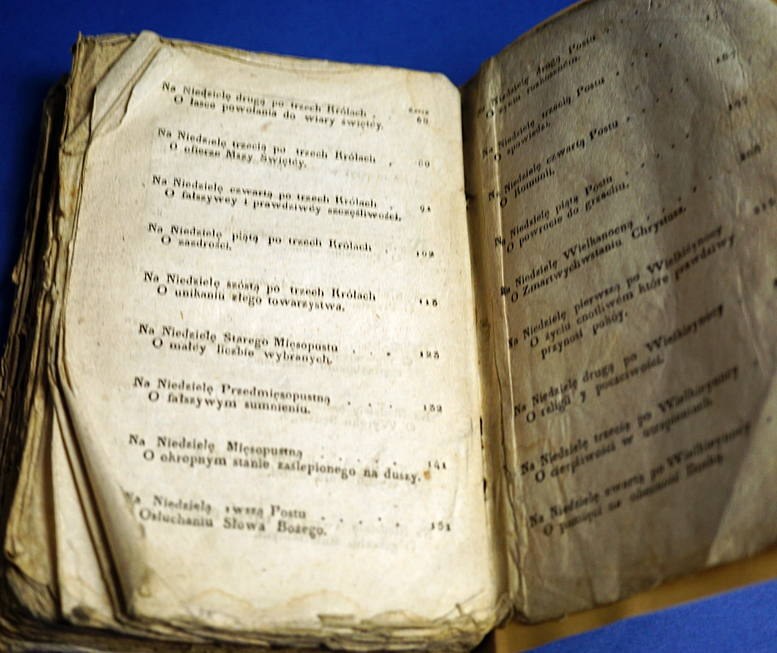 Na Niedzielę drugą po trzech Królach .
O łasce powołania do wiary świętéy. 68
Na Niedzielę trzecią po trzech Królach .
O ofierze Mszy Świętéy.
Na Niedzielę czwartą po trzech Królach .
O fałszywey i prawdziwéy szczęśliwości. 91
Na Niedzielę piątą po trzech Królach
O zazdrości. 102
Na Niedzielę szóstą po trzech Królach
O unikaniu złego towarzystwa. 115
Na Niedzielę Starego Mięsopustu . . . 123
O małéy liczbie wybranych.
Na Niedzielę Przedmięsopustną . . . . 132
O fałszywym sumnieniu.
Na Niedzielę Mięsopustną . . . . . . 141
O okropnym stanie zaślepionego na duszy.
Na Niedzielę wszą Postu . . . . . 151
Osłuchaniu Słowa Bożego.
Niedzielę drugą Postu . . .
Niedzielę trzecią Postu . . .
O spowiedzi.
Niedzielę czwartą Postu . . .
O Komunii.
Niedzielę piątą Postu . . .
O powrocie do grzechu.
Niedzielę Wielkanocną . . .
O Zmartwychwstaniu Chrystusa.
Niedzielę pierwszą po Wielkiejnocy
O życiu cnotliwém które prawdziwy
przynosi pokóy.
Na Niedzielę drugą po Wielkiejnocy
O religii y poczciwości.
Na Niedzielę trzecią po Wielkiejnocy
O cierpliwości w utrapieniach.
Na Niedzielę czwartą po Wielkiejnocy
O